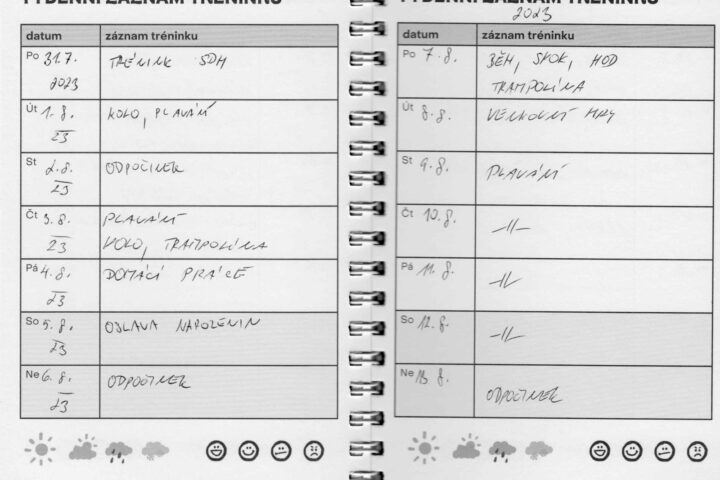 TÝDENNÍ ZÁZNAM TRÉNINKU
datum záznam tréninku
Po 31.7. 2023 TRÉNINK SDH
Út 1.8. 23 KOLO, PLAVÁNÍ
St 2.8. 23 ODPOČINEK
Čt 3.8. 23 PLAVÁNÍ
KOLO, TRAMPOLÍNA
Pá 4.8. 23 DOMÁCÍ PRÁCE
So 5.8. 23 OSLAVA NAROZENIN
Ne 6.8. 23 ODPOČINEK
TÝDENNÍ ZÁZNAM TRÉNINKU
2023
datum záznam tréninku
Po 7.8. BĚH, SKOK, HOD
TRAMPOLÍNA
Út 8.8. VENKOVNÍ HRY
St 9.8. PLAVÁNÍ
Čt 10.8. -||-
Pá 11.8. -||-
So 12.8. -||-
Ne 13.8. ODPOČINEK